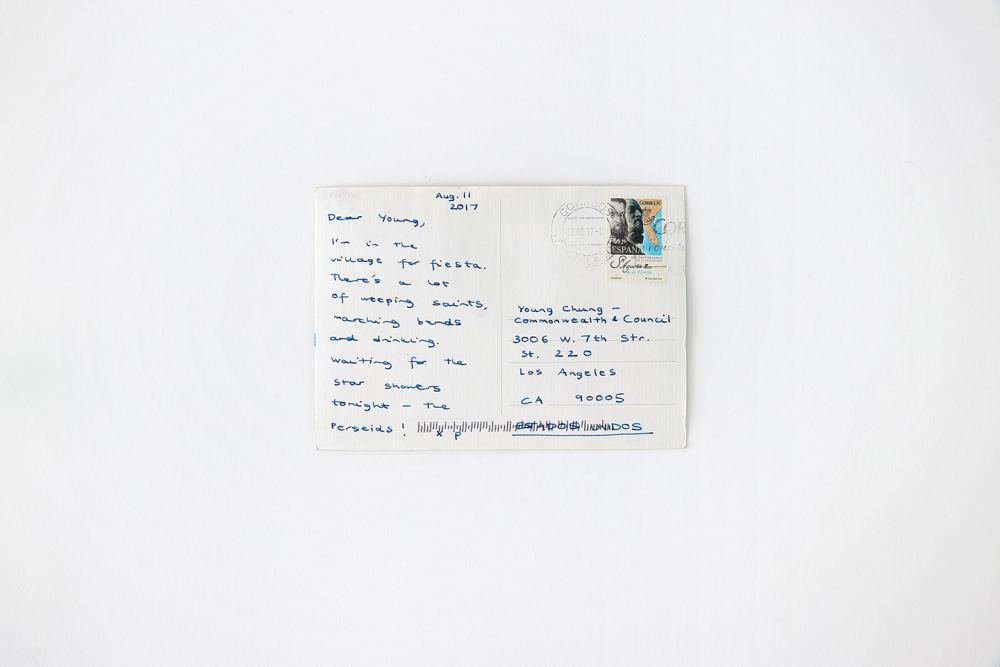 Aug. 11
2017
Dear Young,
I'm in the
village for fiesta.
There's a lot
of weeping saints,
marching bands
and drinking.
Waiting for the
star showers
tonight – The
Perseids!
x p
CORREOS
ESPAÑA
Young Chung –
Commonwealth & Council
3006 W. 7th Str.
St. 220
Los Angeles
CA 90005
ESTADOS UNIDOS